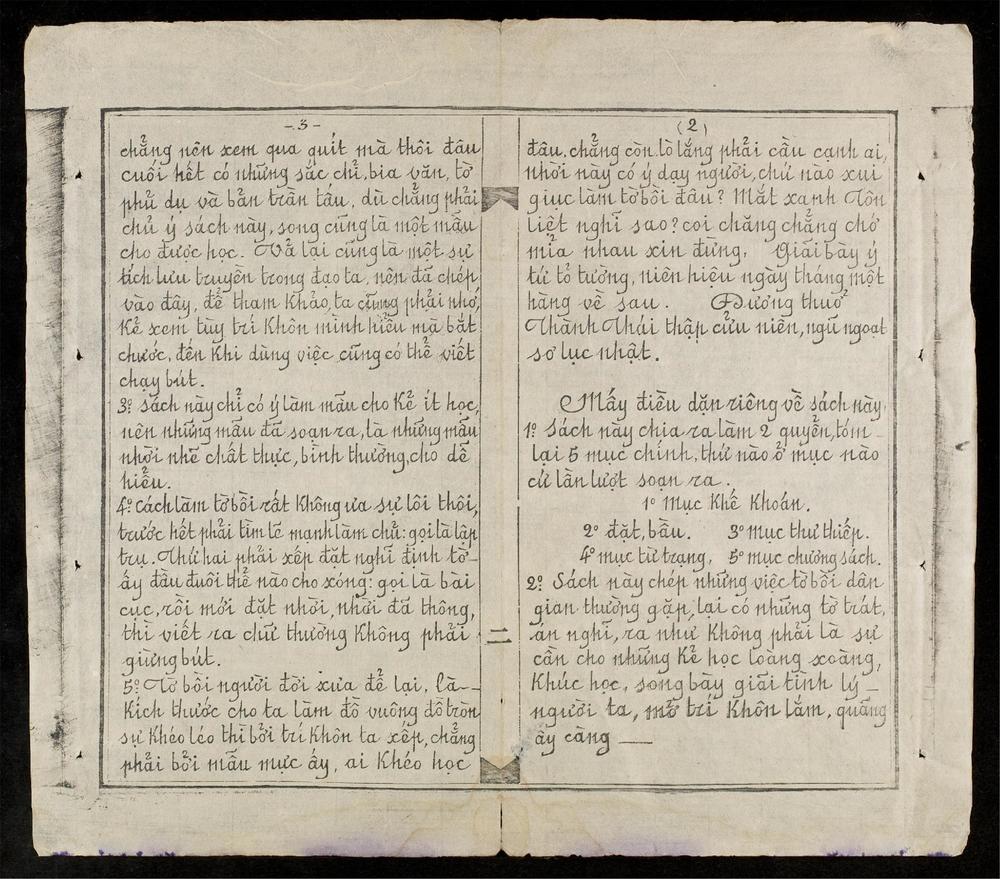 (2)
đâu, chẳng còn lo lắng phải cầu cạnh ai,
nhời này có ý dạy người, chứ nào xui
giục làm tờ bồi đâu? Mắt xanh Tôn
liệt nghĩ sao? coi chăng chẳng chớ
mỉa nhau xin đừng. Giãi bày ý
tứ tỏ tường, niên hiệu ngày tháng một
hàng về sau. Đương thuở
Thành Thái thập cửu niên, ngũ ngoạt
sơ lục nhật.
Mấy điều dặn riêng về sách này.
1º Sách này chia ra làm 2 quyển, tóm
lại 5 mục chính, thứ nào ở mục nào
cứ lần lượt soạn ra.
1º Mục Khế Khoán.
2º đặt, bầu. 3º mục thư thiếp.
4º mục từ trạng, 5º mục chương sách.
2º Sách này chép những việc tờ bồi dân
gian thường gặp, lại có những tờ trát,
án nghĩ, ra như không phải là sự
cần cho những kẻ học loàng xoàng,
khúc học, song bày giãi tình lý
người ta, mở trí khôn lắm, quãng
ấy càng —
二
-3-
chẳng nên xem qua quít mà thôi đâu
cuối hết có những sắc chỉ, bia văn, tờ
phủ dụ và bản trần tấu, dù chẳng phải
chủ ý sách này, song cũng là một mẫu
cho được học. Vả lại cũng là một sự
tích lưu truyền trong đạo ta, nên đã chép
vào đây, để tham khảo, ta cũng phải nhớ,
kẻ xem tùy trí khôn mình hiểu mà bắt
chước, đến khi dùng việc cũng có thể viết
chạy bút.
3º Sách này chỉ có ý làm mẫu cho kẻ ít học,
nên những mẫu đã soạn ra, là những mẫu
nhời nhẽ chất thực, bình thường, cho dễ
hiểu.
4º Cách làm tờ bồi rất không ưa sự lôi thôi,
trước hết phải tìm lẽ mạnh làm chủ: gọi là lập
trụ. Thứ hai phải xếp đặt nghĩ định tờ
ấy đầu đuôi thể nào cho xóng: gọi là bài
cục, rồi mới đặt nhời, nhời đã thông,
thì viết ra chữ thường không phải
giừng bút.
5º Tờ bồi người đời xưa để lại, là
kích thước cho ta làm đồ vuông đồ tròn
sự khéo léo thì bởi trí khôn ta xếp, chẳng
phải bởi mẫu mực ấy, ai khéo học